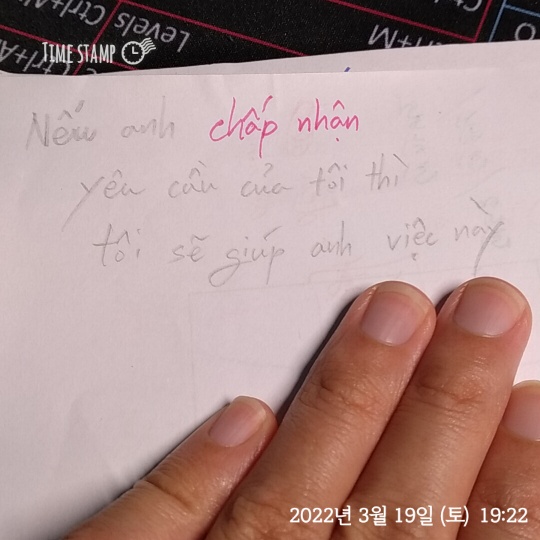 Levels Ctrl+
Ctrl+M
TIME STAMP
Nếu anh chấp nhận
yêu cầu của tôi thì
tôi sẽ giúp anh việc này
2022년 3월 19일 (토) 19:22